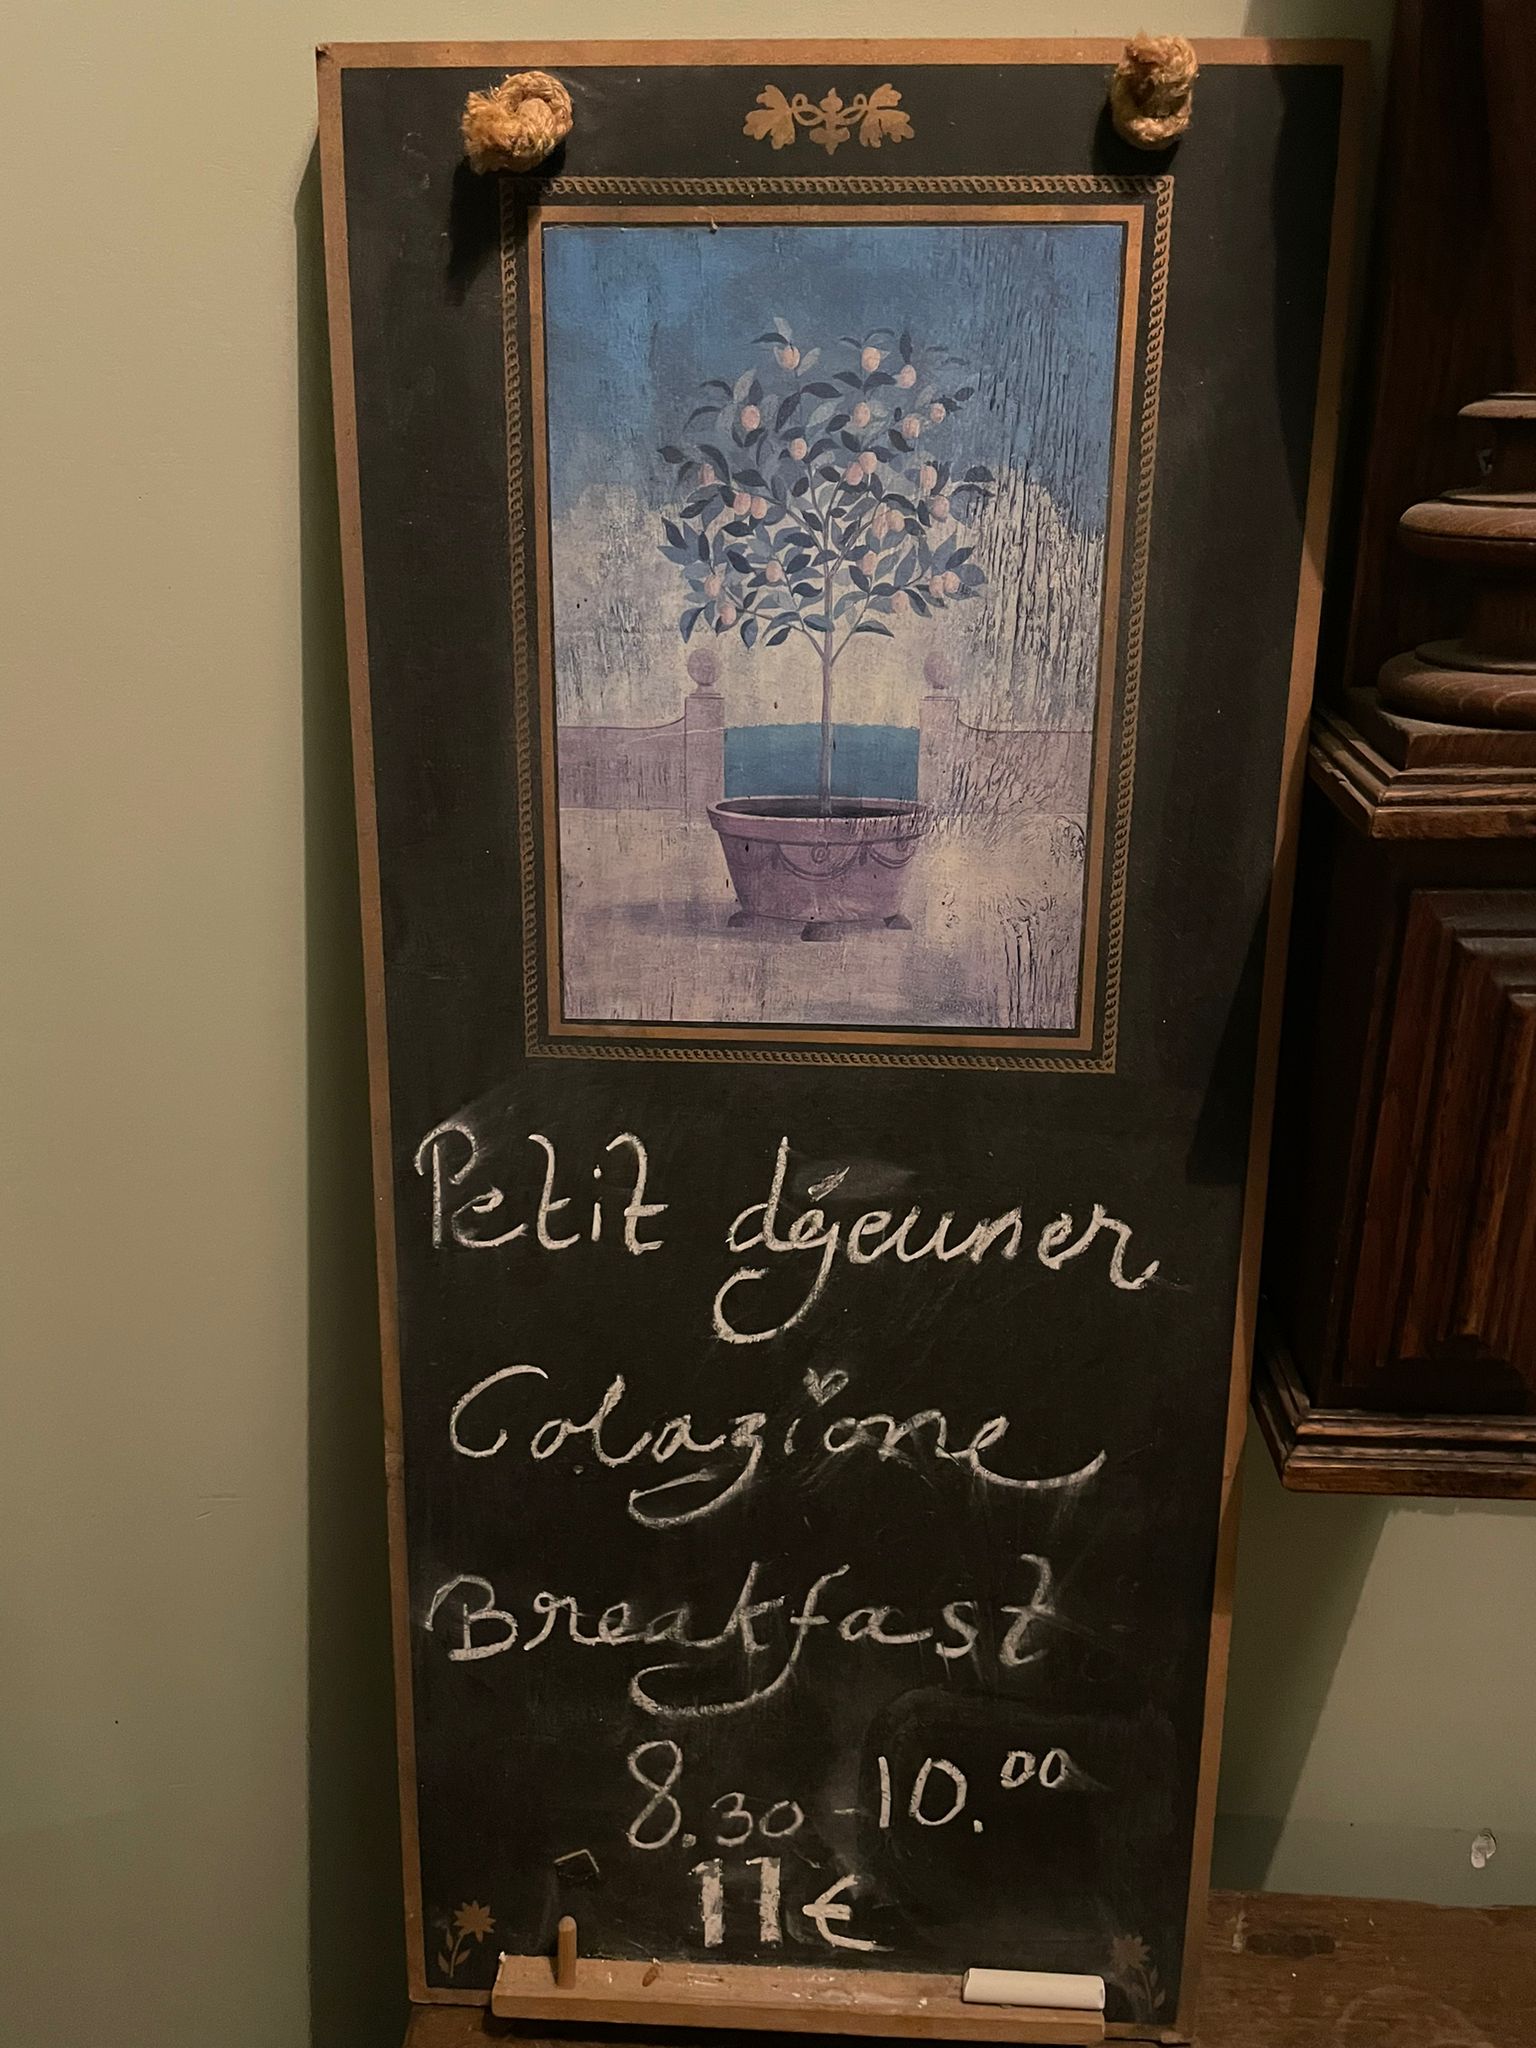 Petit déjeuner
Colazione
Breakfast
8.30 - 10.00
11€